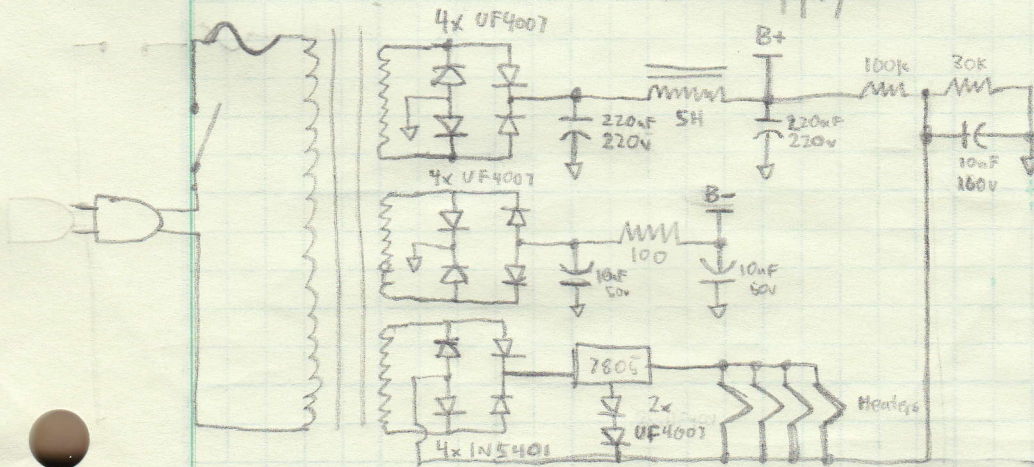 4x UF4007
B+
100k
30K
220uF
220v
5H
220uF
220v
10uF
160v
4x UF4007
B-
100
10uF
50v
10uF
50v
7805
2x
UF4007
Heaters
4x 1N5401